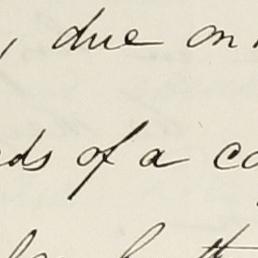 , due on
ds of a co